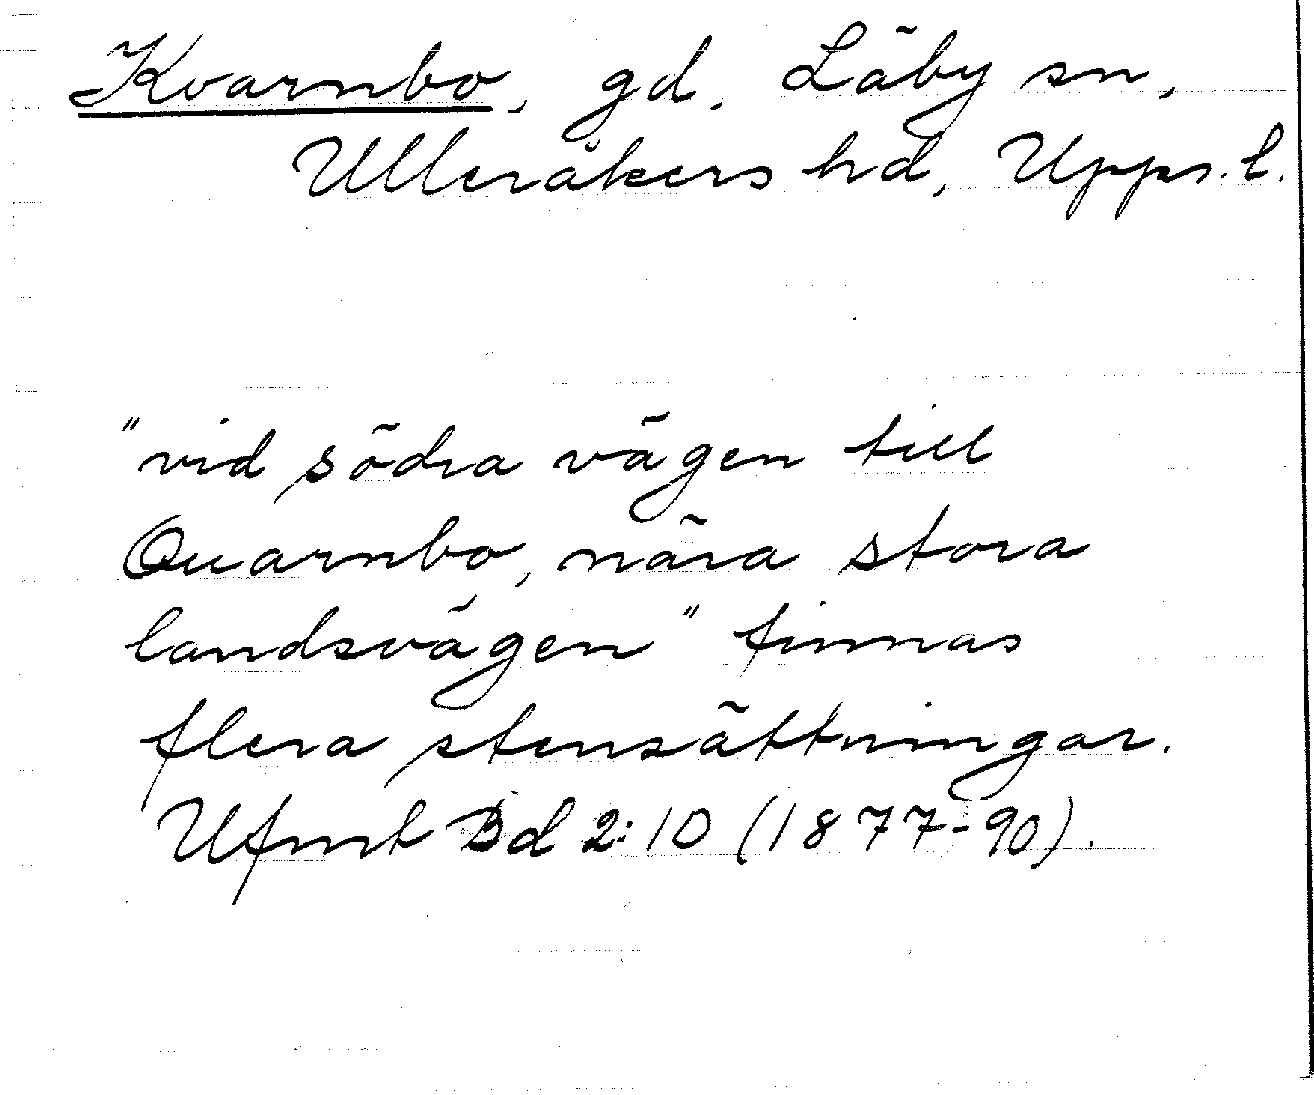 Kvarnbo, gd. Läby sn,
Ulleråkers hd, Upps. l.
"vid södra vägen till
Quarnbo, nära stora
landsvägen" finnas
flera stensättningar.
Ufmt Bd 2:10 (1877-90).